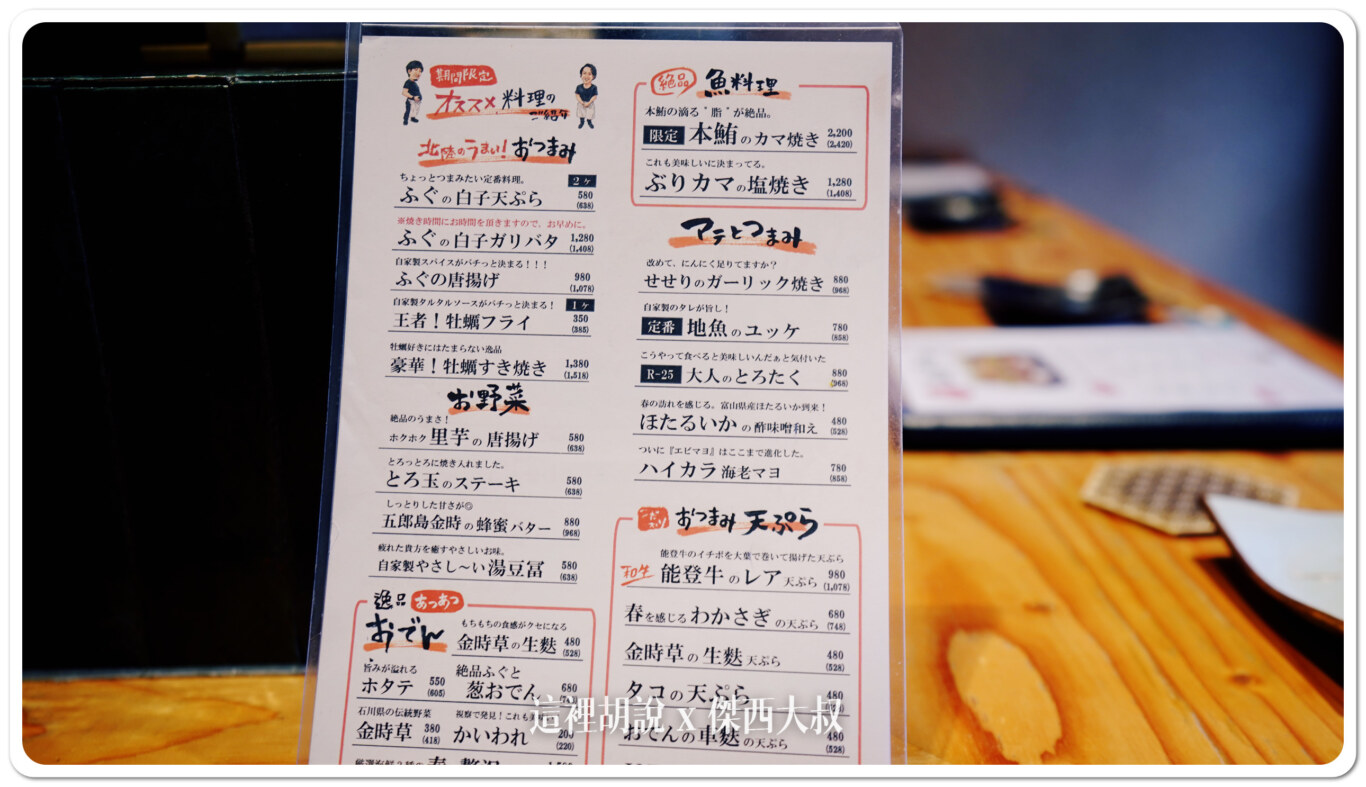 期間限定
オススメ料理の
ご紹介
北陸のうまい!おつまみ
ちょっとつまみたい定番料理。 2ヶ
ふぐの白子天ぷら 580 (638)
※焼き時間にお時間を頂きますので、お早めに。
ふぐの白子ガリバタ 1,280 (1,408)
自家製スパイスがバチっと決まる!!!
ふぐの唐揚げ 980 (1,078)
自家製タルタルソースがバチっと決まる! 1ヶ
王者!牡蠣フライ 350 (385)
牡蠣好きにはたまらない逸品
豪華!牡蠣すき焼き 1,380 (1,518)
お野菜
絶品のうまさ!
ホクホク里芋の唐揚げ 580 (638)
とろっとろに焼き入れました。
とろ玉のステーキ 580 (638)
しっとりした甘さが◎
五郎島金時の蜂蜜バター 880 (968)
疲れた貴方を癒すやさしいお味。
自家製やさし~い湯豆冨 580 (638)
逸品 あつあつ
おでん
もちもちの食感がクセになる
金時草の生麩 480 (528)
旨みが溢れる
ホタテ 550 (605)
絶品ふぐと
葱おでん 680
石川県の伝統野菜
金時草 380 (418)
視察で発見!これも
かいわれ 200 (220)
絶品 魚料理
本鮪の滴る"脂"が絶品。
限定 本鮪のカマ焼き 2,200 (2,420)
これも美味しいに決まってる。
ぶりカマの塩焼き 1,280 (1,408)
アテとつまみ
改めて、にんにく足りてますか?
せせりのガーリック焼き 880 (968)
自家製のタレが旨し!
定番 地魚のユッケ 780 (858)
こうやって食べると美味しいんだぁと気付いた
R-25 大人のとろたく 880 (968)
春の訪れを感じる。富山県産ほたるいか到来!
ほたるいかの酢味噌和え 480 (528)
ついに『エビマヨ』はここまで進化した。
ハイカラ海老マヨ 780 (858)
おつまみ天ぷら
能登牛のイチボを大葉で巻いて揚げた天ぷら
和牛 能登牛のレア天ぷら 980 (1,078)
春を感じるわかさぎの天ぷら 680 (748)
金時草の生麩天ぷら 480 (528)
タコの天ぷら 480
おでんの車麩の天ぷら 480 (528)
這裡胡說 x 傑西大叔